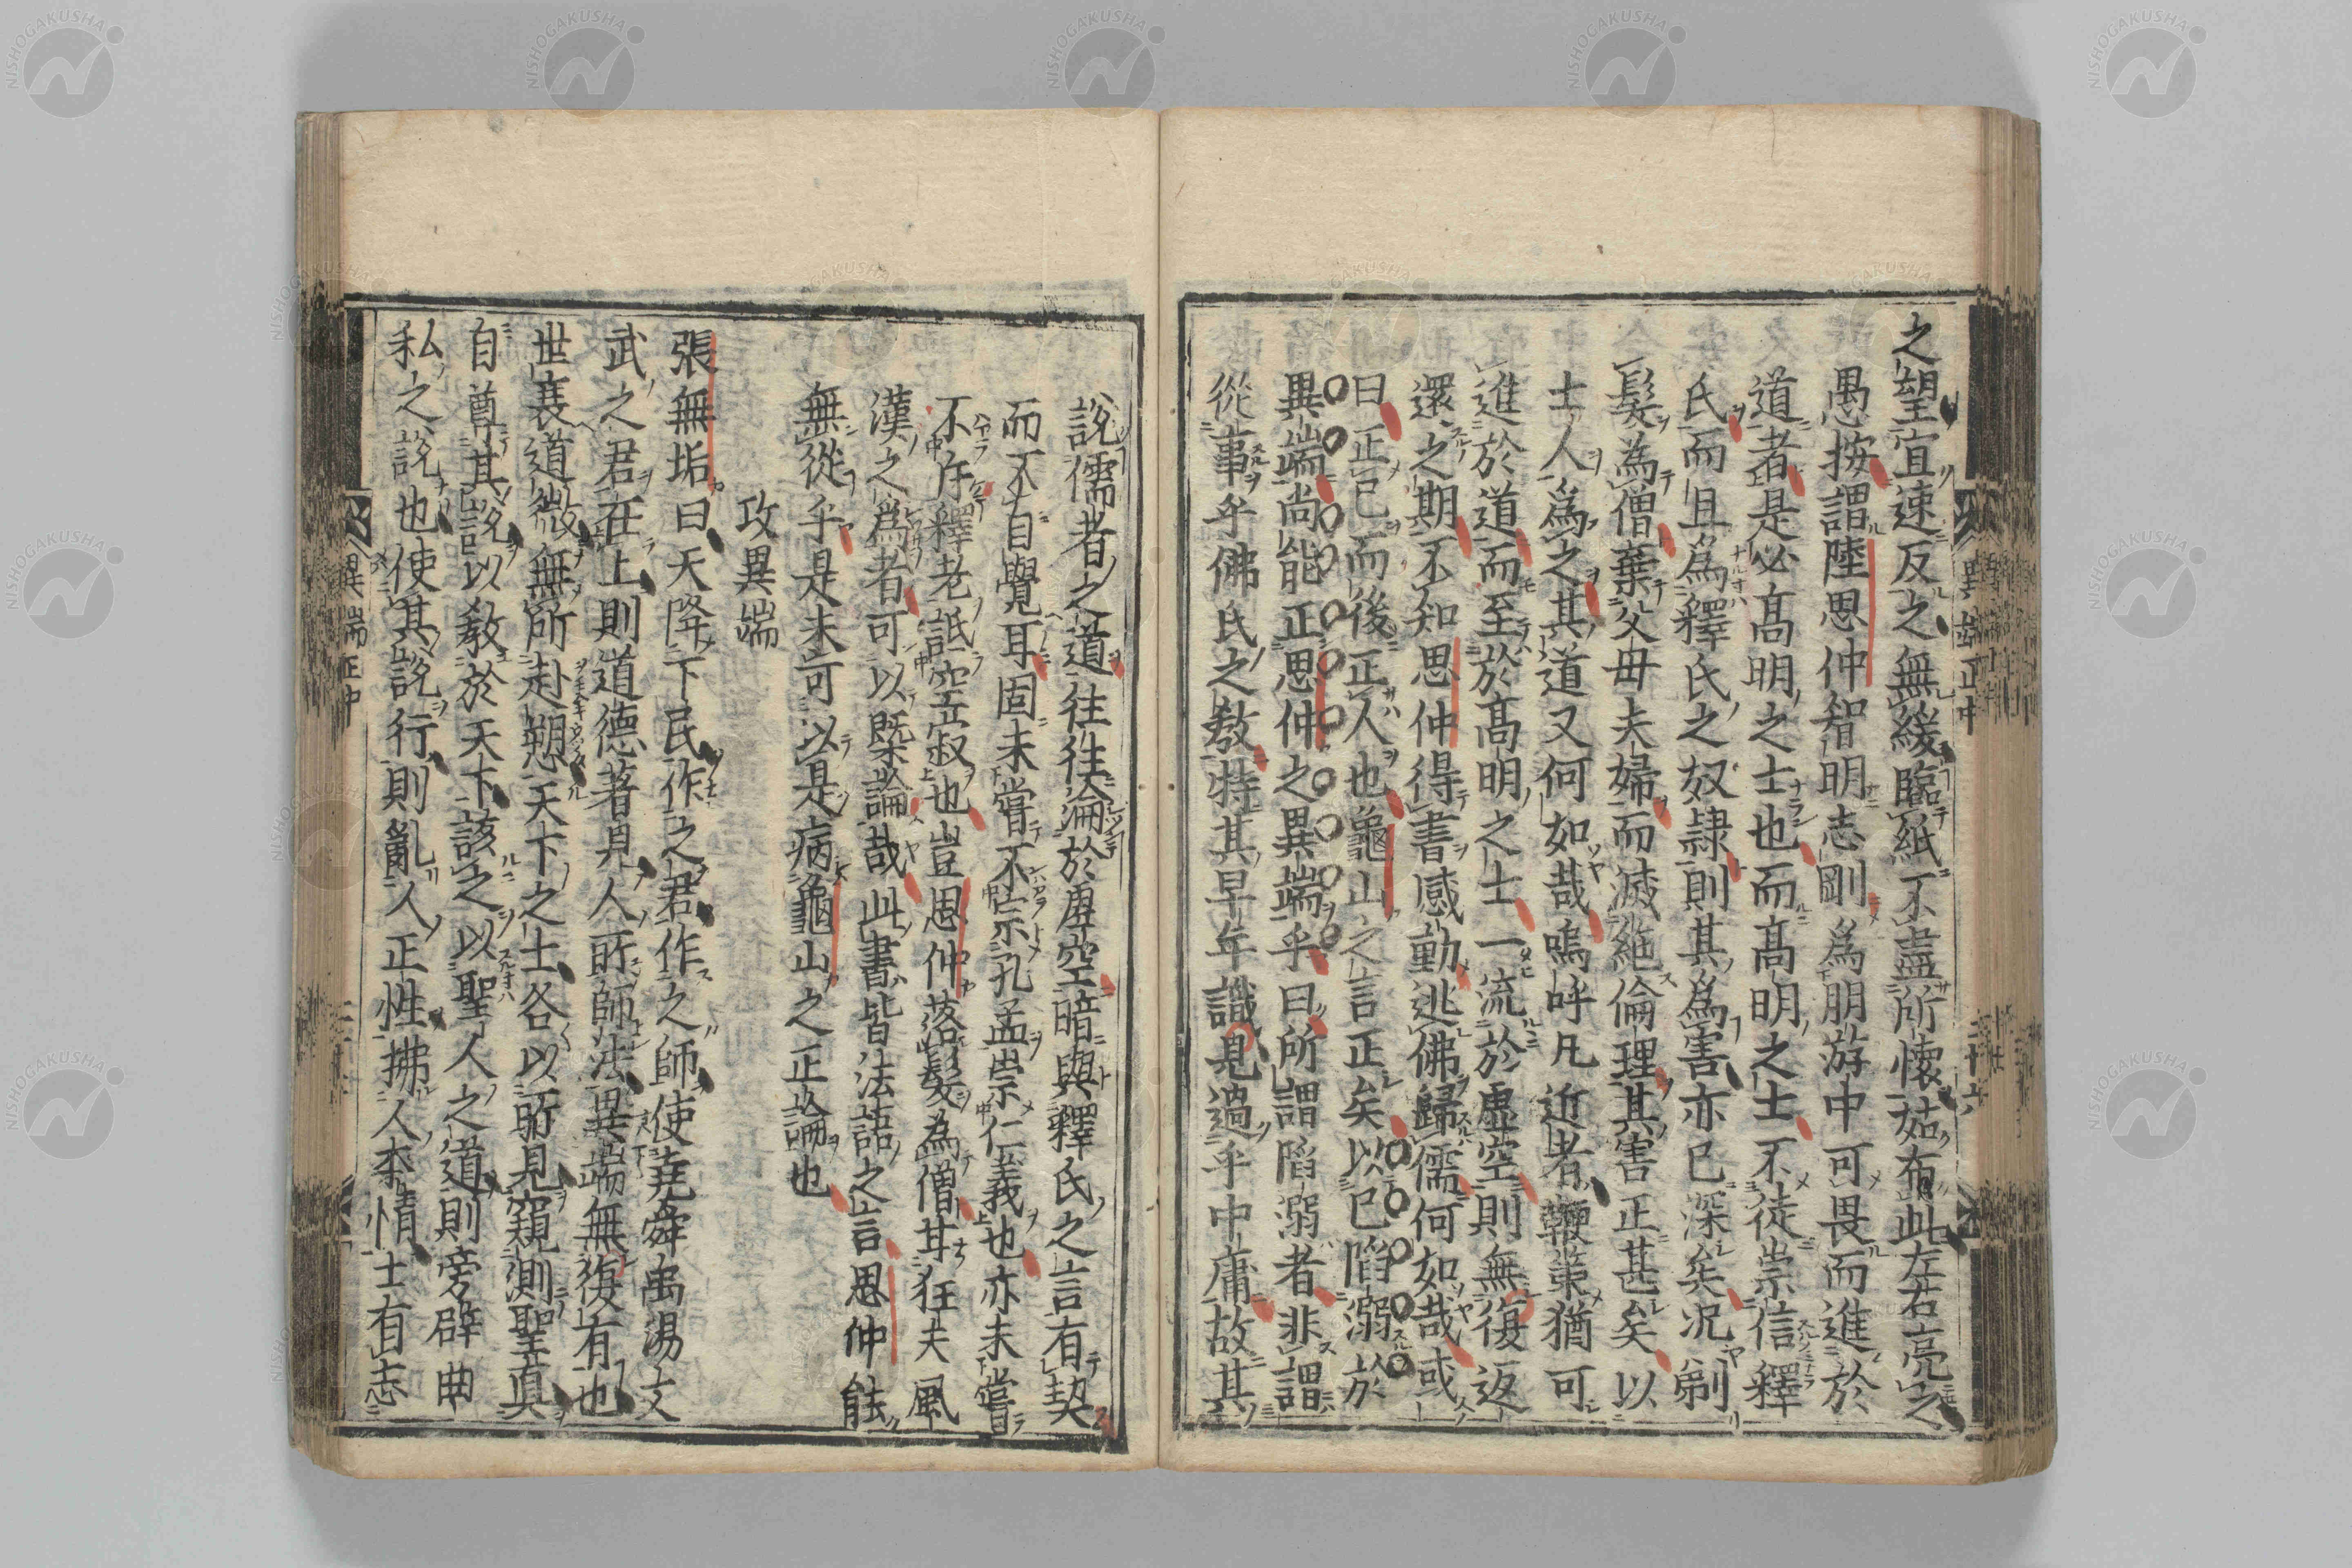 之望宜速反之無緩臨紙不盡所懷茹布此左右亮之
愚按謂陸思仲智明志剛爲朋游中可畏而進於
道者是必高明之士也而高明之士不徒崇信釋
氏而且爲釋氏之奴隷則其爲害亦已深矣况剃
髮為僧棄父母夫婦而滅絶倫理其害正甚矣以
士人爲之其道又何如哉嗚呼凡近者鞭策猶可
進於道而至於高明之士一流於虛空則無復返
還之期不知思仲得書感動逃佛歸儒何如哉或
曰正已而後正人也龜山之言正矣以已陷溺於
異端尚能正思仲之異端乎曰所謂陷溺者非謂
從事乎佛氏之教特其早年識見過乎中庸故其
說儒者之道往往淪於虛空暗與釋氏之言有契
而不自覺耳固未嘗不宗孔孟崇仁義也亦未嘗
不斥釋老詆空寂也豈思仲落髮為僧耳狂夫風
漢之爲者可以槩論哉此書皆法語之言思仲能
無從乎是未可以是病龜山之正論也
攻異端
張無垢曰天降下民作之君作之師使堯舜禹湯文
武之君在上則道德著見人所師法異端無復有也
世衰道微無所赴愬天下之士各以所見窺測聖真
自尊其說以教於天下該之以聖人之道則旁辟曲
私之說也使其說行則亂人正性拂人李情士有志
異端正中
三十六
異端正中